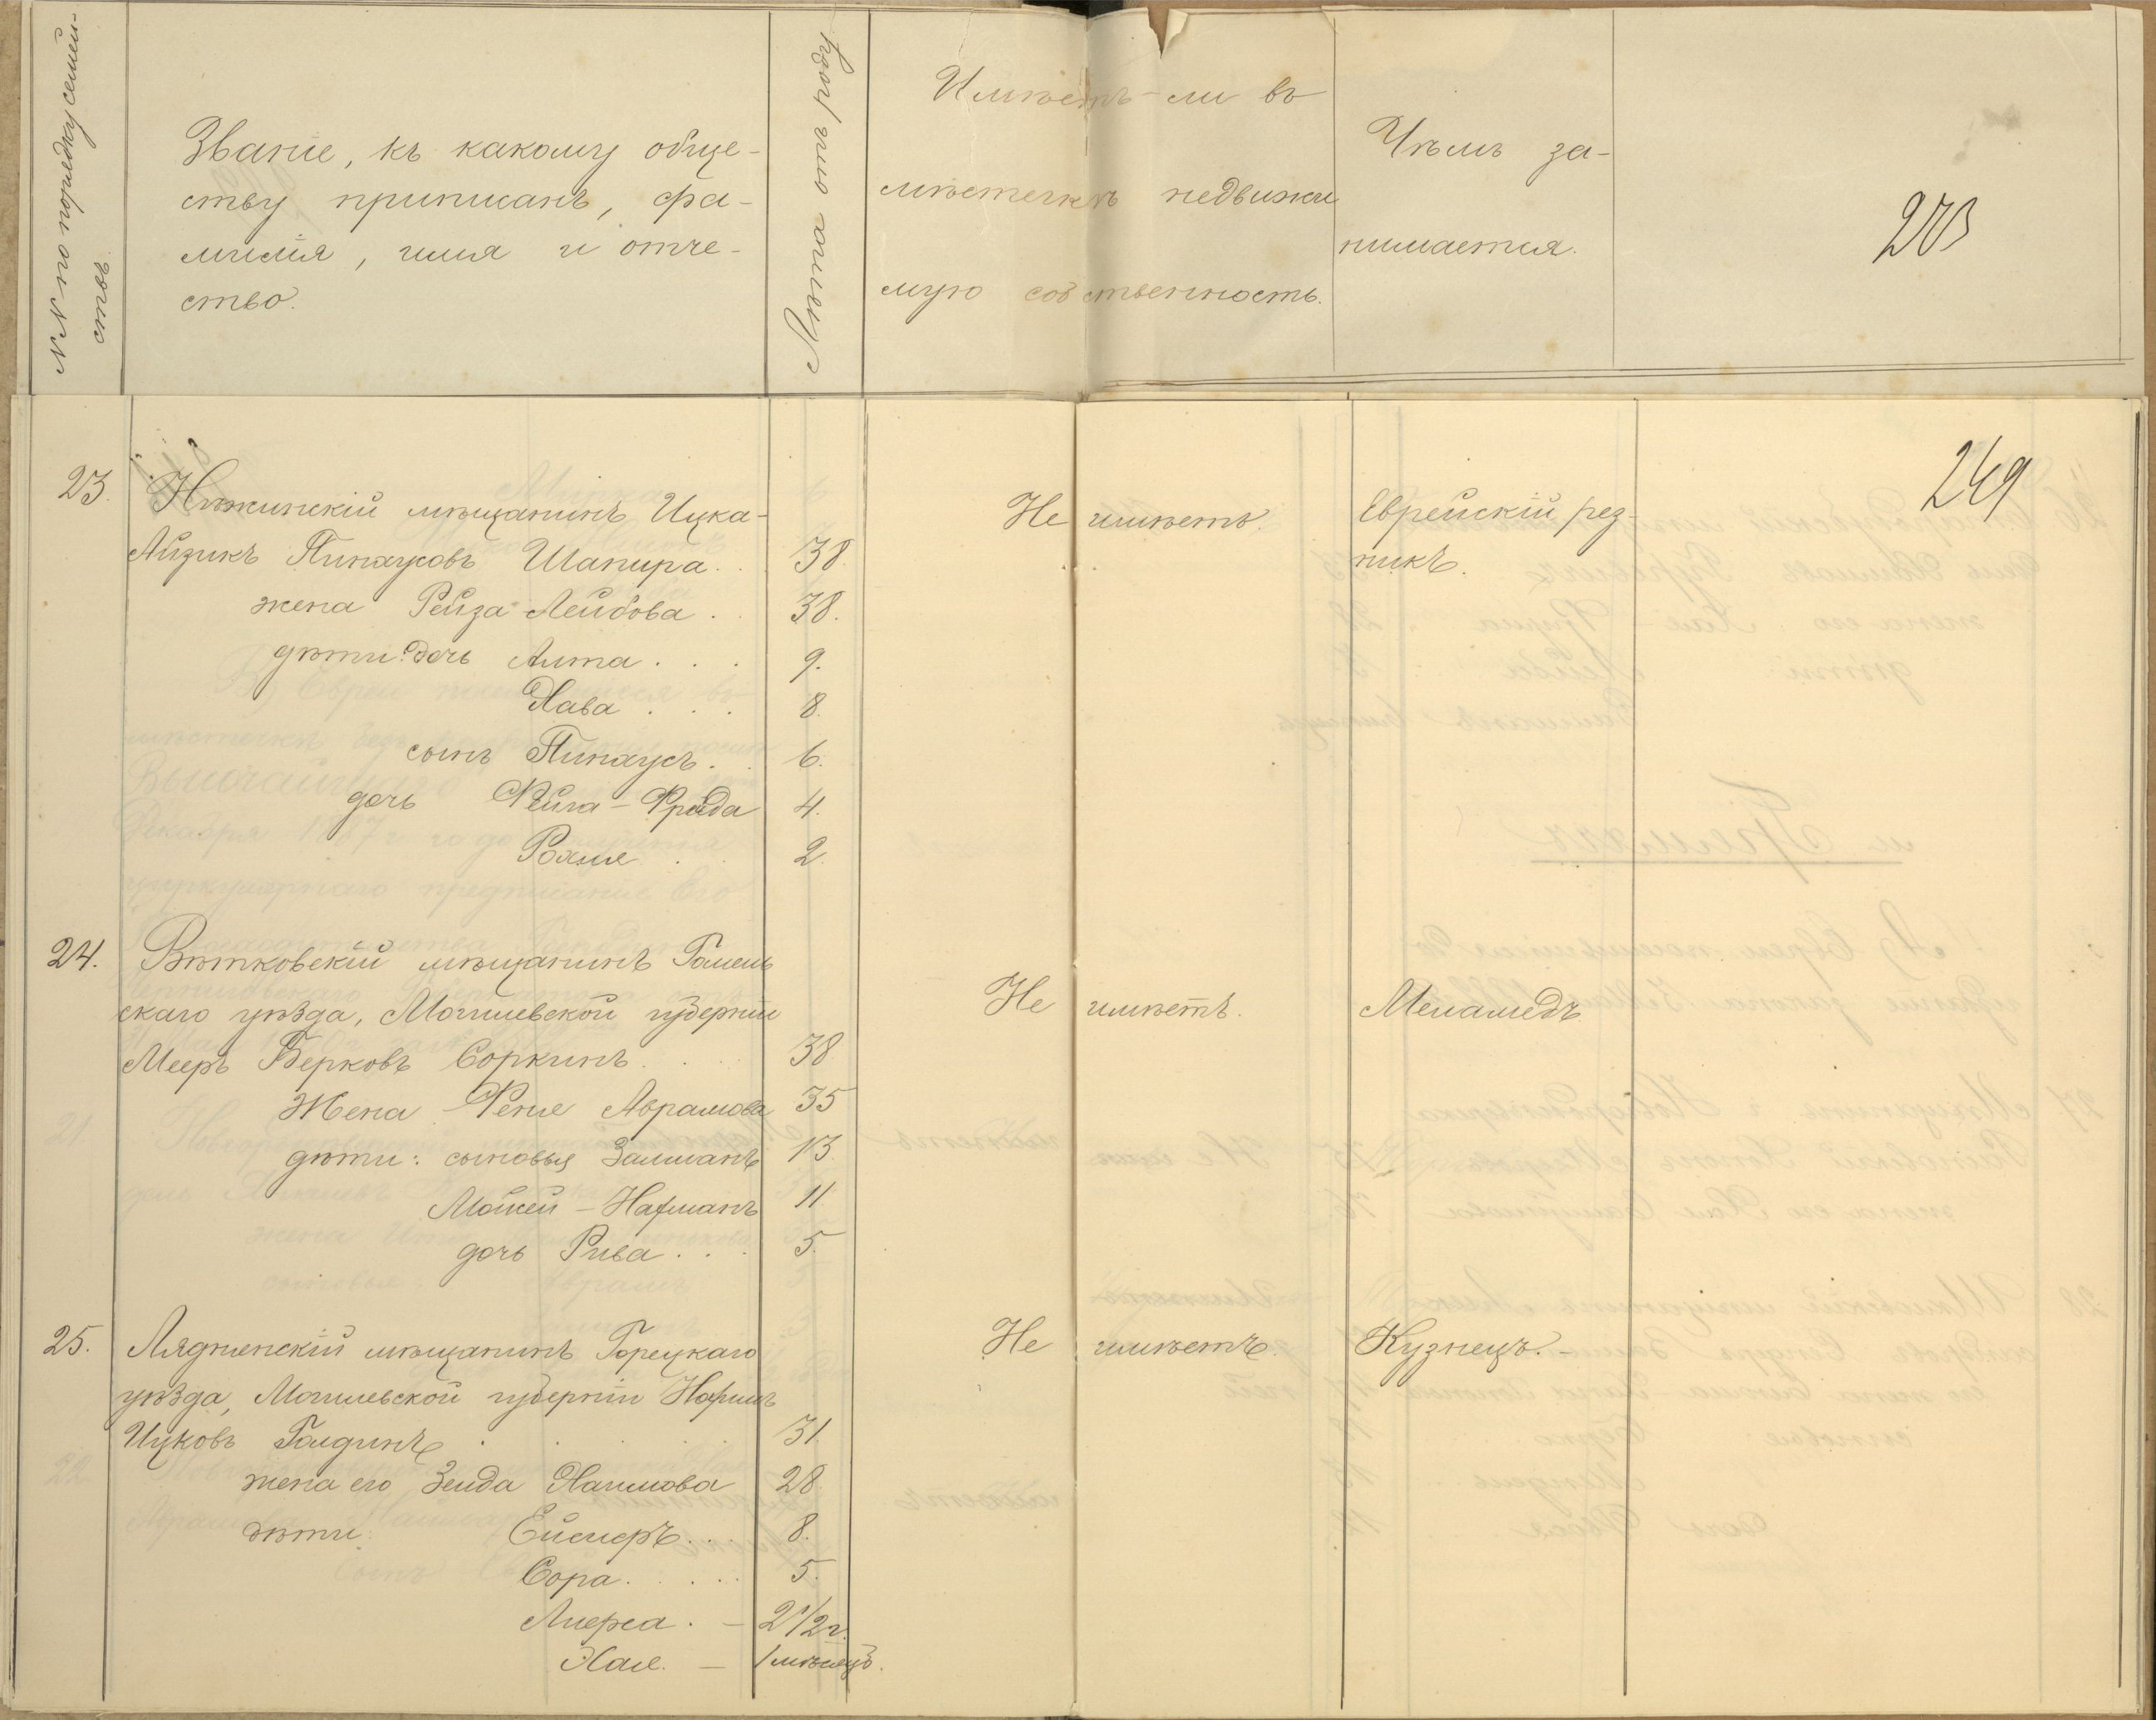 №№ по порядку семей-
ствъ.
Званіе, къ какому обще-
ству приписанъ, фа-
милія, имя и отче-
ство.
Лѣта отъ роду
Имѣетъ-ли въ
мѣстечкѣ недвижи
мую собственность.
Чѣмъ за-
нимается.
203
249
23.
Нѣжинскій мѣщанинъ Ицка-
Айзикъ Пинхусовъ Шапира. 38.
жена Рейза Лейбова. 38.
дѣти: дочь Алта . . . 9.
Хава . . . 8.
сынъ Пинхусъ. . 6.
дочь Фейга-Фрейда 4.
Рохля . . 2.
Не имѣетъ.
Еврейскій рез-
никъ.
24.
Вѣтковскій мѣщанинъ Гомель
скаго уѣзда, Могилевской губерніи
Мееръ Берковъ Соркинъ. . . 38
Жена Феня Абрамова 35
дѣти: сыновья Залманъ 13
Мойсей-Нахманъ 11
дочь Рива . . . 5.
Не имѣетъ.
Меламедъ.
25.
Лядненскій мѣщанинъ Горецкаго
уѣзда, Могилевской губерніи
Ицковъ Голдинъ . . . . 31.
жена его Хаимова 28
дѣти: 8.
Сора. . . . . 5.
2 1/2 г.
Хая. — 1 мѣсяцъ.
Не имѣетъ.
Кузнецъ.-